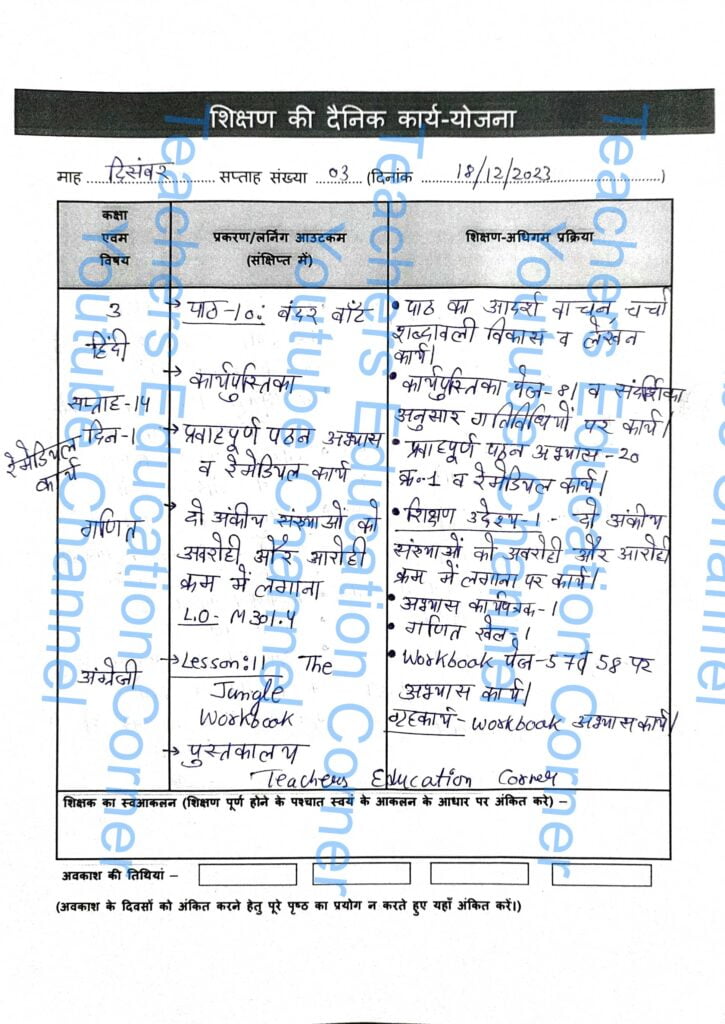 शिक्षण की दैनिक कार्य-योजना
माह दिसंबर सप्ताह संख्या 03 (दिनांक 18/12/2023)
कक्षा एवम विषय
प्रकरण/लर्निंग आउटकम (संक्षिप्त में)
शिक्षण-अधिगम प्रक्रिया
3
हिंदी
सप्ताह-14
दिन-1
रेमेडियल
कार्य
→ पाठ-10: बंदर बाँट
→ कार्यपुस्तिका
→ प्रवाहपूर्ण पठन अभ्यास
व रेमेडियल कार्य
• पाठ का आदर्श वाचन, चर्चा
शब्दावली विकास व लेखन
कार्य।
• कार्यपुस्तिका पेज-81 व संदर्शिका
अनुसार गतिविधियों पर कार्य।
• प्रवाहपूर्ण पठन अभ्यास-20
क्र.-1 व रेमेडियल कार्य।
गणित
→ दो अंकीय संख्याओं को
अवरोही और आरोही
क्रम में लगाना
L.O:- M301.4
• शिक्षण उद्देश्य-1 - दो अंकीय
संख्याओं को अवरोही और आरोही
क्रम में लगाना पर कार्य।
• अभ्यास कार्यपत्रक-1
• गणित खेल-1
अंग्रेजी
→ Lesson:11 The
Jungle
Workbook
→ पुस्तकालय
• Workbook पेज-57व 58 पर
अभ्यास कार्य।
गृहकार्य- Workbook अभ्यास कार्य।
Teachers Education Corner
शिक्षक का स्वआकलन (शिक्षण पूर्ण होने के पश्चात स्वयं के आकलन के आधार पर अंकित करे) –
अवकाश की तिथियां –
(अवकाश के दिवसों को अंकित करने हेतु पूरे पृष्ठ का प्रयोग न करते हुए यहाँ अंकित करें।)
Teachers Education Corner
Youtube Channel
Teachers Education Corner
Youtube Channel
Teachers Education Corner
Youtube Channel